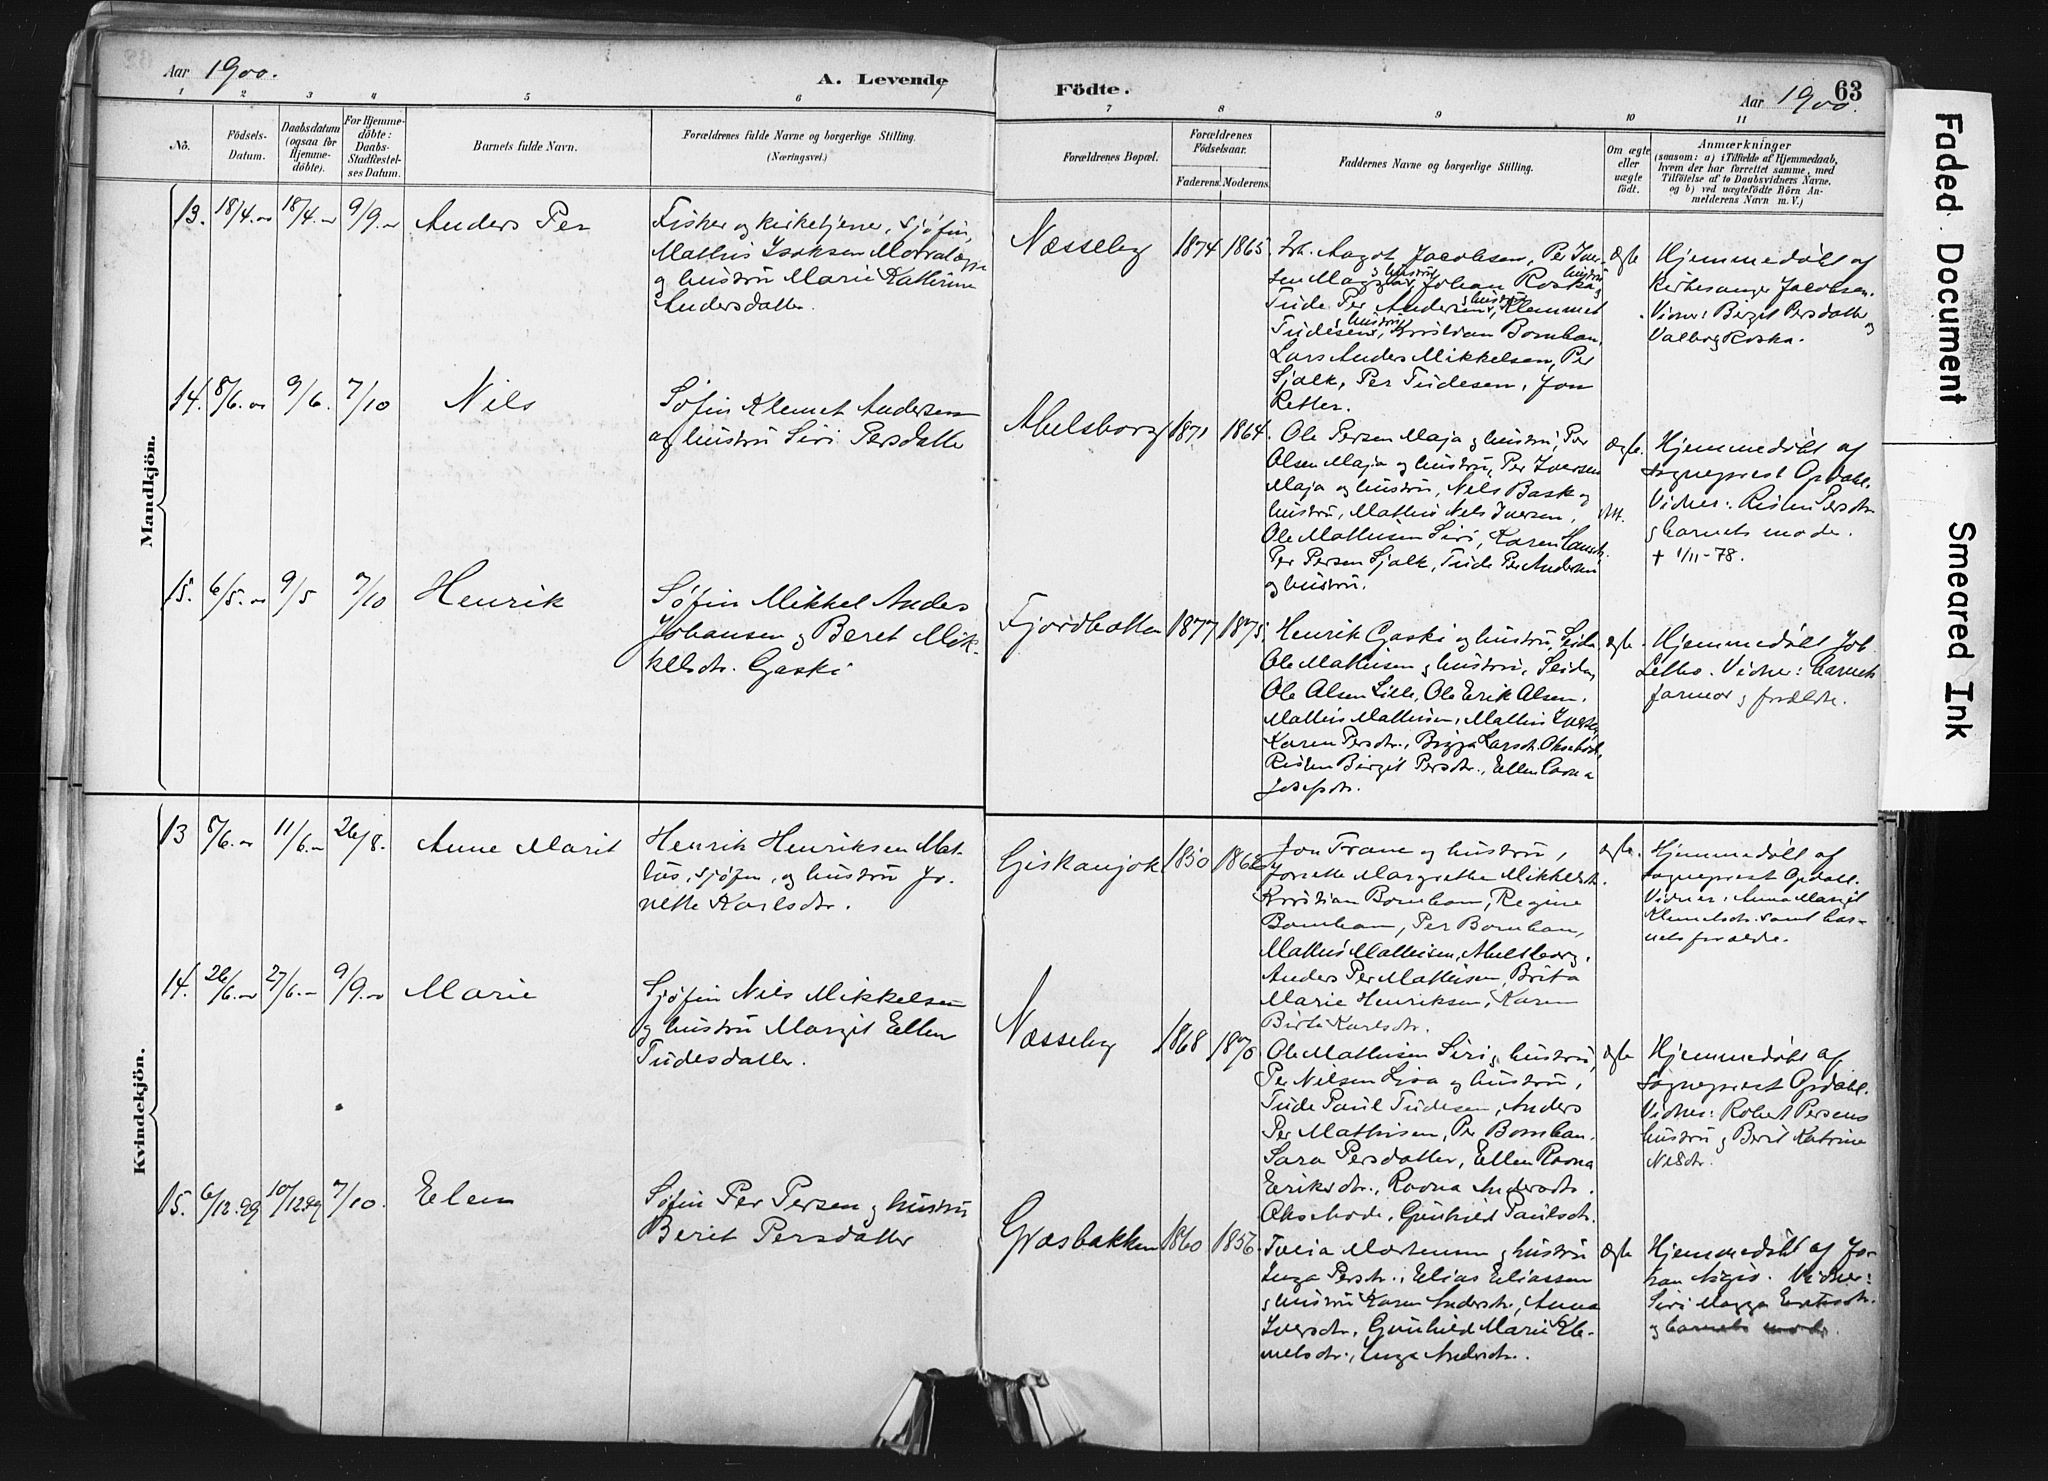 Aar 1900.
A. Levende
Födte.
Aar 1900.
63
1 2 3 4 5 6 7 8 9 10 11
No.
Födsels-Datum.
Daabsdatum (ogsaa for Hjemmedöbte).
For Hjemmedöbte: Daabs-Stadfæstelses Datum.
Barnets fulde Navn.
Forældrenes fulde Navne og borgerlige Stilling.
(Næringsvei.)
Forældrenes Bopæl.
Forældrenes Födselsaar.
Faderens. Moderens.
Faddernes Navne og borgerlige Stilling.
Om ægte eller uægte födt.
Anmærkninger
(saasom: a) i Tilfælde af Hjemmedaab, hvem der har forrettet samme, med Tilföielse af to Daabsvidners Navne, og b) ved uægtefödte Börn Anmelderens Navn m. V.)
Mandkjön.
13. 18/4.00 18/4.00 9/9.00 Anders Per
Fisker og kirketjener, sjøfin,
Mathis Isaksen
og hustru Marie Kathrine
Andersdatter.
Næsseby 1874 1865.
Frk. Aagot Jacobsen, Per Iver-
sen Magga og hustru, Johan Roska og hustru
Tude Per Andersen og hustru, Klemmet
Tudesen og hustru, Kristian Bomban,
Lars Anders Mikkelsen, Per
Sjalk, Per Tudesen, Jon
Retter.
ægte
Hjemmedöbt af
Kirkesanger Jacobsen.
Vidner: Birgit Persdatter og
Valborg Roska.
14. 8/6.00 9/6. 7/10 Nils
Søfin Klemet Andersen
og hustru Siri Persdatter
Abelsborg 1871 1864.
Ole Persen Maja og hustru, Per
Olsen Maja og hustru, Per Iversen
Maja og hustru, Nils Bask og
hustru, Mathis Nels Iversen,
Ole Mathisen Siri, Karen
Per Persen Sjalk, Tude Per Andersen
og hustru.
ægte.
Hjemmedöbt af
sogneprest Opdahl.
Vidner: Risten Persdtr.
og barnets moder.
+ 1/11-78.
15. 6/5.00 9/5 7/10 Henrik
Søfin Mikkel Anders
Johansen og Beret Mik-
kelsdtr. Gaski
Fjordbotten 1877 1875
Henrik Gaski og hustru, Seida.
Ole Mathisen og hustru, Seida,
Ole Olsen Lille, Ole Erik Olsen,
Mathis Mathisen, Mathis Iversen,
Karen Persdtr., Bigga Larsdtr.
Risten Birgit Persdtr., Ellen Ravna
Josefsdtr.
ægte.
Hjemmedöbt
Vidner: barnets
farmor og forældre.
Kvindekjön.
13 8/6.00 11/6.00 26/8. Anne Marit
Henrik Henriksen Mat-
tus, sjøfin, og hustru Jo-
nette Karlsdtr.
Giskanjok 1850 1862
Jon Trane og hustru,
Jonette Margrethe Mikkelsdtr.
Kristian Bomban, Regine
Bomban, Per Bomban,
Mathis Mathisen, Abelsborg,
Anders Per Mathisen, Brita
Marie Henriksen, Karen
Birte Karlsdtr.
ægte.
Hjemmedöbt af
sogneprest Opdahl.
Vidner: Anna Margit
Klemetsdtr. samt bar-
nets forældre.
14. 26/6.00 27/6.00 9/9.00 Marie
Sjøfin Nils Mikkelsen
og hustru Margit Ellen
Tudesdatter.
Næsseby 1868 1870
Ole Mathisen Siri og hustru,
Per Nilsen Lisa og hustru,
Tude Paul Tudesen, Anders
Per Mathisen, Per Bomban.
Sara Persdatter, Ellen Ravna
Eriksdtr., Ravna Andersdtr.
Gunhild Paulsdtr.
ægte
Hjemmedöbt af
sogneprest Opdahl.
Vidner: Robert Persens
hustru og Berit Katrine
Nilsdtr.
15. 6/12.99 10/12.99 7/10. Elen
Søfin Per Persen og hustru
Berit Persdatter
Græsbakken 1860 1856.
Mortensen og hustru
Inga Persdtr., Elias Eliassen
og hustru Karen Andersdtr., Anna
Iversdtr., Gunhild Marie Kle-
metsdtr., Inga Andersdtr.
ægte
Hjemmedöbt af Jo-
han. Vidner:
Siri Magga Eriksdtr.
og barnets moder.
Faded Document
Smeared Ink